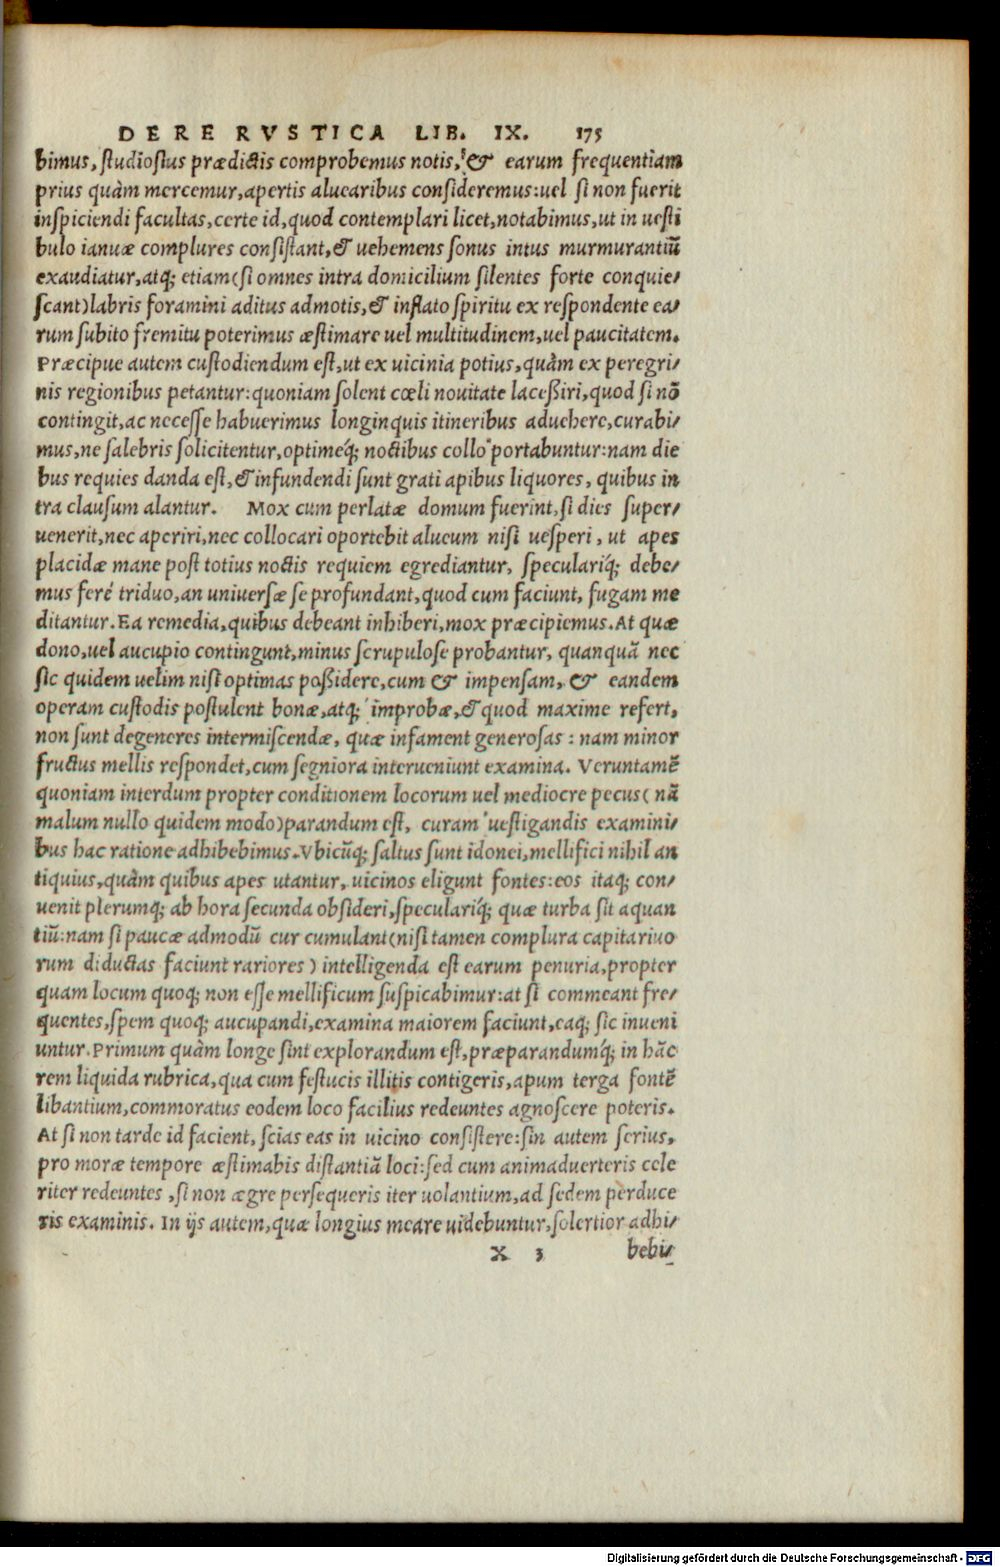 DE RE RVSTICA LIB. IX. 175
bimus, studiosius prædictis comprobemus notis, & earum frequentiam
prius quàm mercemur, apertis aluearibus consideremus: uel si non fuerit
inspiciendi facultas, certe id, quod contemplari licet, notabimus, ut in uesti
bulo ianuæ complures consistant, & uehemens sonus intus murmurantiũ
exaudiatur, atq; etiam (si omnes intra domicilium silentes forte conquie/
scant) labris foramini aditus admotis, & inflato spiritu ex respondente ea/
rum subito fremitu poterimus æstimare uel multitudinem, uel paucitatem.
Præcipue autem custodiendum est, ut ex uicinia potius, quàm ex peregri/
nis regionibus petantur: quoniam solent cœli nouitate laceßiri, quod si nõ
contingit, ac necesse habuerimus longinquis itineribus aduehere, curabi/
mus, ne salebris solicitentur, optimeq́; noctibus collo portabuntur: nam die
bus requies danda est, & infundendi sunt grati apibus liquores, quibus in
tra clausum alantur. Mox cum perlatæ domum fuerint, si dies super/
uenerit, nec aperiri, nec collocari oportebit alueum nisi uesperi, ut apes
placidæ mane post totius noctis requiem egrediantur, speculariq́; debe/
mus feré triduo, an uniuersæ se profundant, quod cum faciunt, fugam me
ditantur. Ea remedia, quibus debeant inhiberi, mox præcipiemus. At quæ
dono, uel aucupio contingunt, minus scrupulose probantur, quanquã nec
sic quidem uelim nisi optimas poßidere, cum & impensam, & eandem
operam custodis postulent bonæ, atq; improbæ, & quod maxime refert,
non sunt degeneres intermiscendæ, quæ infament generosas: nam minor
fructus mellis respondet, cum segniora interueniunt examina. Veruntamẽ
quoniam interdum propter conditionem locorum uel mediocre pecus (nã
malum nullo quidem modo) parandum est, curam uestigandis examini/
bus hac ratione adhibebimus. Vbicũq; saltus sunt idonei, mellifici nihil an
tiquius, quàm quibus apes utantur, uicinos eligunt fontes: eos itaq; con/
uenit plerumq; ab hora secunda obsideri, speculariq́; quæ turba sit aquan
tiũ: nam si paucæ admodũ cur cumulant (nisi tamen complura capita riuo
rum diductas faciunt rariores) intelligenda est earum penuria, propter
quam locum quoq; non esse mellificum suspicabimur: at si commeant fre/
quentes, spem quoq; aucupandi, examina maiorem faciunt, eaq; sic inueni
untur. Primum quàm longe sint explorandum est, præparandumq́; in hãc
rem liquida rubrica, qua cum festucis illitis contigeris, apum terga fontẽ
libantium, commoratus eodem loco facilius redeuntes agnoscere poteris.
At si non tarde id facient, scias eas in uicino consistere: sin autem serius,
pro moræ tempore æstimabis distantiã loci: sed cum animaduerteris cele
riter redeuntes, si non ægre persequeris iter uolantium, ad sedem perduce
ris examinis. In ijs autem, quæ longius meare uidebuntur, solertior adhi/
X 3 bebi/
Digitalisierung gefördert durch die Deutsche Forschungsgemeinschaft - DFG